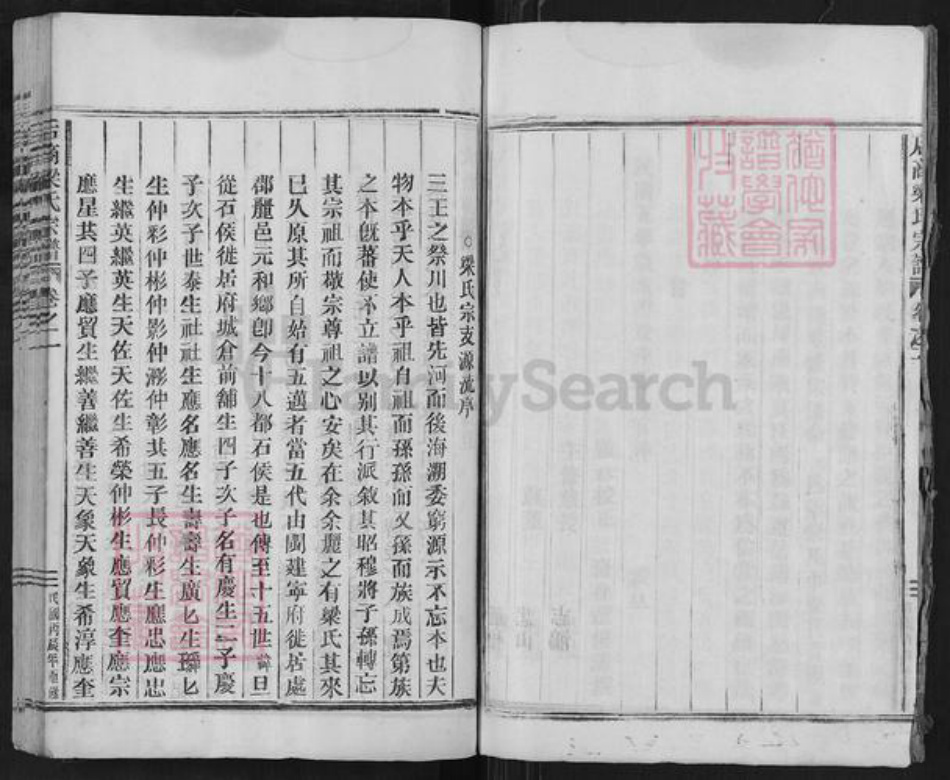 梁氏宗譜
譜學會
收藏
○梁氏宗支源流序
三王之祭川也皆先河而後海溯委窮源示不忘本也夫
物本乎天人本乎祖自祖而孫孫而又孫而族成焉第族
之本旣蕃使不立譜以别其行派敘其昭穆將子孫轉忘
其宗祖而敬宗尊祖之心安矣在余余麗之有梁氏其來
已久原其所自始有五邁者當五代由閩建寧府徙居處
郡麗邑元和鄉卽今十八都石侯是也傳至十五世諱旦
從石侯徙居府城倉前舖生四子次子名有慶生二子慶
予次子世泰生社社生應名應名生壽壽生廣匕生聯匕
生仲彩仲彬仲影仲澎仲彰其五子長仲彩生應忠應忠
生繼英繼英生天佐天佐生希榮仲彬生應貿應奎應宗
應星其四子應貿生繼善繼善生天象天象生希淳應奎
梁氏宗譜 卷之一
民國丙辰年
FamilySearch